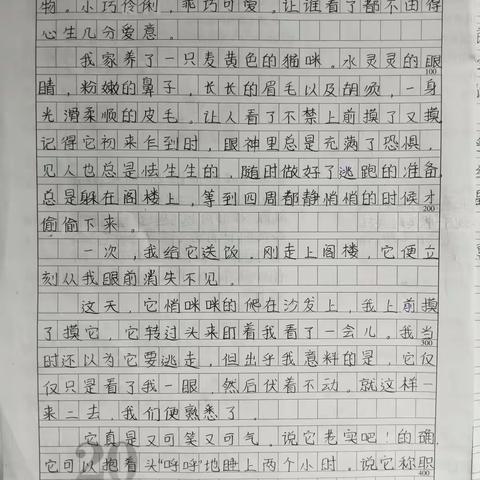 物。小巧伶俐，乖巧可爱。让谁看了都不由得
心生几分爱意。
我家养了一只麦黄色的猫咪。水灵灵的眼
100
睛，粉嫩的鼻子，长长的眉毛以及胡须，一身
光滑柔顺的皮毛。让人看了不禁上前摸了又摸
记得它初来乍到时，眼神里总是充满了恐惧，
见人也总是怯生生的，随时做好了逃跑的准备，
总是躲在阁楼上，等到四周都静悄悄的时候才
200
偷偷下来。
一次，我给它送饭。刚走上阁楼，它便立
刻从我眼前消失不见。
这天，它悄咪咪的爬在沙发上，我上前摸
了摸它，它转过头来盯着我看了一会儿。我当
300
时还以为它要逃走，但出乎我意料的是，它仅
仅只是看了我一眼，然后伏着不动。就这样一
来二去，我们便熟悉了。
它真是又可笑又可气。说它老实吧！的确，
它可以抱着头"呼呼"地睡上两个小时。说它称职
400
20